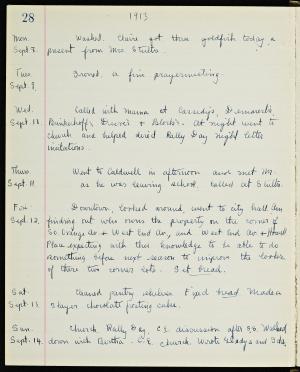 28 1913
Mon. Washed. Claire got three goldfish today a
Sept. 8. present from Mrs. Stults.
Tues. Ironed, a fine prayermeeting.
Sept. 9.
Wed. Called with Mama at Cassedy's,
Sept. 10 & Block's. At night went to
church and helped direct Rally Day night letter
invitations.
Thurs. Went to Caldwell in afternoon and met Mr.
Sept. 11. as he was leaving school, called at Stults.
Fri. Downtown, looked around, went to city hall
Sept. 12. finding out who owns the property on the corner of
So. Orange Av. & West End Av. and West End Av. &
Place expecting with this knowledge to be able to do
something before next season to improve the looks
of these two corner lots. Set bread.
Sat. Cleaned pantry shelves. Fixed bread. Made a
Sept. 13. 3 layer chocolate frosting cake.
Sun. Church, Rally Day, C.E. discussion after S.S. Walked
Sept. 14. down with Bertha. C.E. church. Wrote Gladys and Ida.